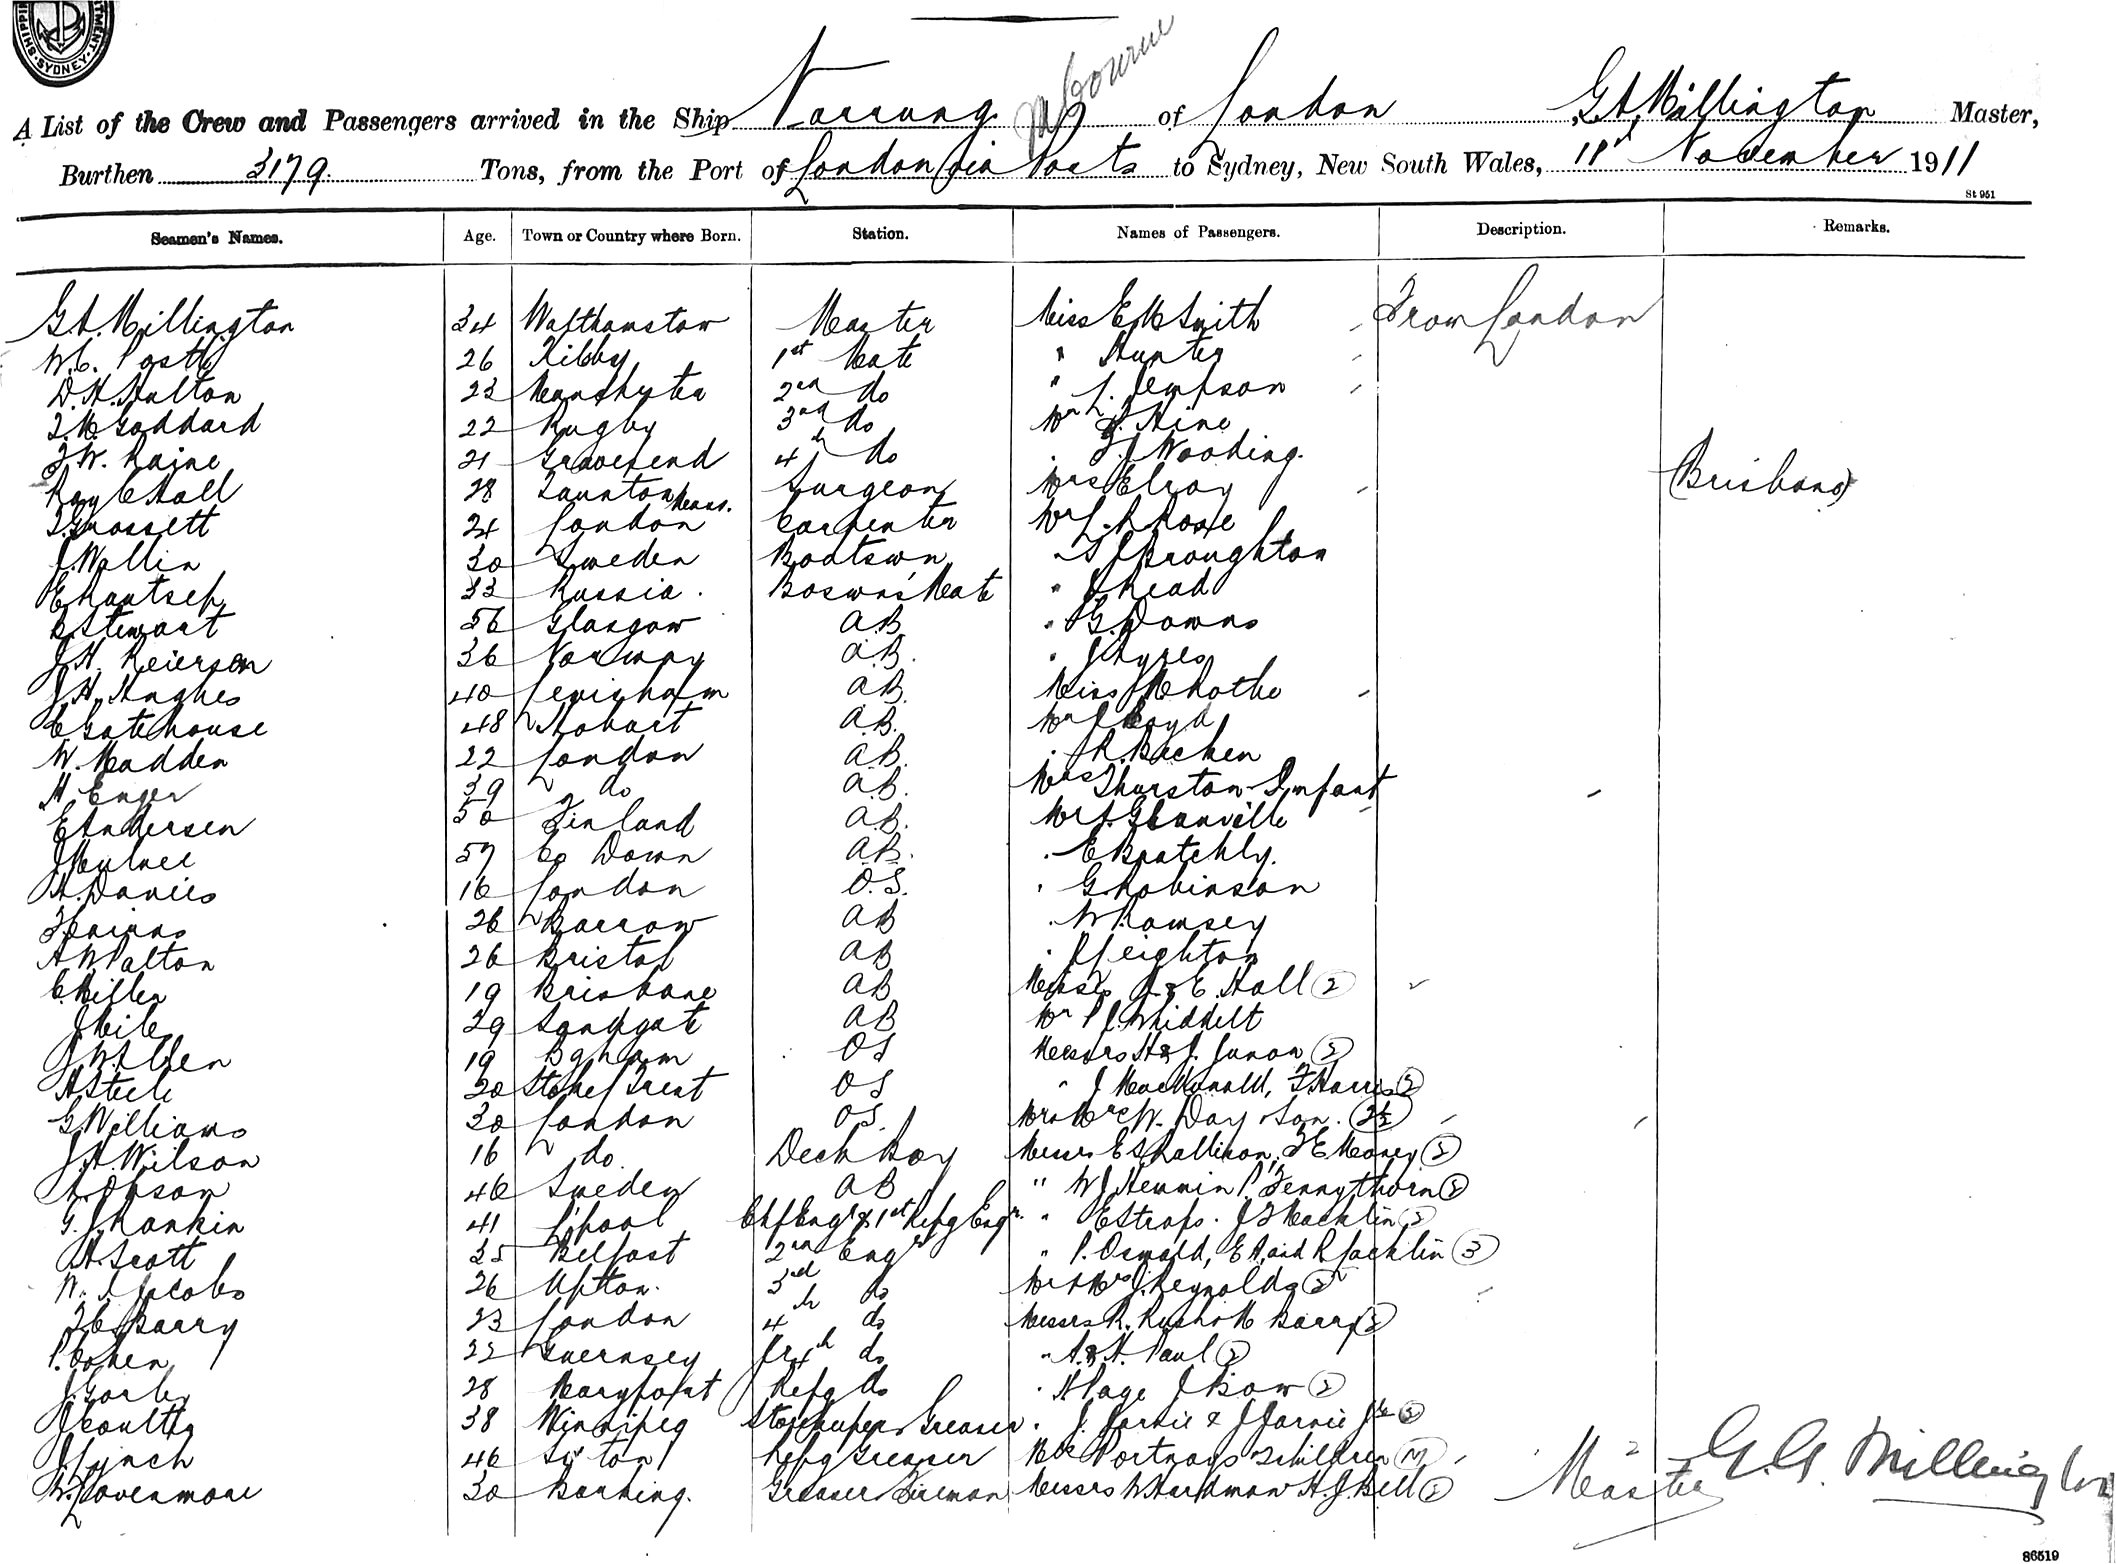 SHIPPING DEPARTMENT. SYDNEY.
A List of the Crew and Passengers arrived in the Ship Narrung of London G.A. Millington Master,
Burthen 3179. Tons, from the Port of London via Ports to Sydney, New South Wales, November 1911
St 951
Seamen's Names. Age. Town or Country where Born. Station. Names of Passengers. Description. Remarks.
G.A. Millington 34 Walthamstow Master Miss E M Smith From London
W.C. Postle 26 Kilby 1st Mate " Hunter
D.H. Hulton 23 Manchester 2nd do " L. Jempson
T.M. Goddard 22 Rugby 3rd do Mr Hine
F.W. Raine 21 Gravesend 4th do F.J. Wooding.
Ray C Hall 28 Taunton Mass. Surgeon Mrs Elroy Brisbane
T. Grossett 24 London Carpenter Mr Rose
J. Wallin 30 Sweden Boatswn Broughton
E Kautsep 33 Russia. Boswns Mate " J Read
R Stewart 56 Glasgow A.B " G. Downs
J.H. Reiersen 36 Norway A.B. " J Ayres
J.H. Hughes 40 A.B. Miss M Rothe
C Gatehouse 48 Hobart A.B. Mr Boyd
W. Madden 22 London A.B. R. Bachen
H. Enger 39 do A.B. Mrs Thurston & Infant
E Andersen 50 Finland A.B. Mr A. Glanville
J 57 Co Down A.B. E Bratchly.
A. Davies 16 London O.S. G. Robinson
T Cairns 26 Barrow AB W Ramsey
A W Palton 26 Bristol AB J Leighton
C. Miller 19 Brisbane AB Misses & E. Hall (2)
J 29 Sandgate AB Mr P J. Middelt
J W Allen 19 OS Messrs H & J. Junor (2)
A Steele 20 Stoke/Trent OS " J MacDonald, F Harris (2)
G Williams 30 London O.S. Mr & Mrs W. Day & Son. (2½)
J.H. Wilson 16 do Deck Boy Messrs E S Rallison, F E Maney (2)
46 Sweden AB " W J Hemmin P. Pennythorn (2)
G. J Rankin 41 L'pool Chf Engr & 1st Refg Engr. " E Straps. J T Macklin (2)
A. Scott 35 Belfast 2nd Engr " P. Oswald, E A, and R Jacklin (3)
W. J. Jacobs 26 Upton. 3rd do Mr & Mrs J. Reynolds (2)
T C Barry 23 London 4th do Messrs R. Rush & M Barry (2)
P. Cohen 22 Guernsey Jr 4th do " A. & H. Paul (2)
J. Gorley 28 Maryport Refg do " H Page J Bow (2)
J Coulthy 38 Winnipeg Storekeeper & Greaser " J. Jarvie & J Jarvie Jr (2)
J Lynch 46 Refg Greaser Mrs Portnoys 3 children
W. Lovenmore 30 Barking. Greaser & Fireman Messrs W Hardman A. J. Bell (2)
Master G.A. Millington
86519